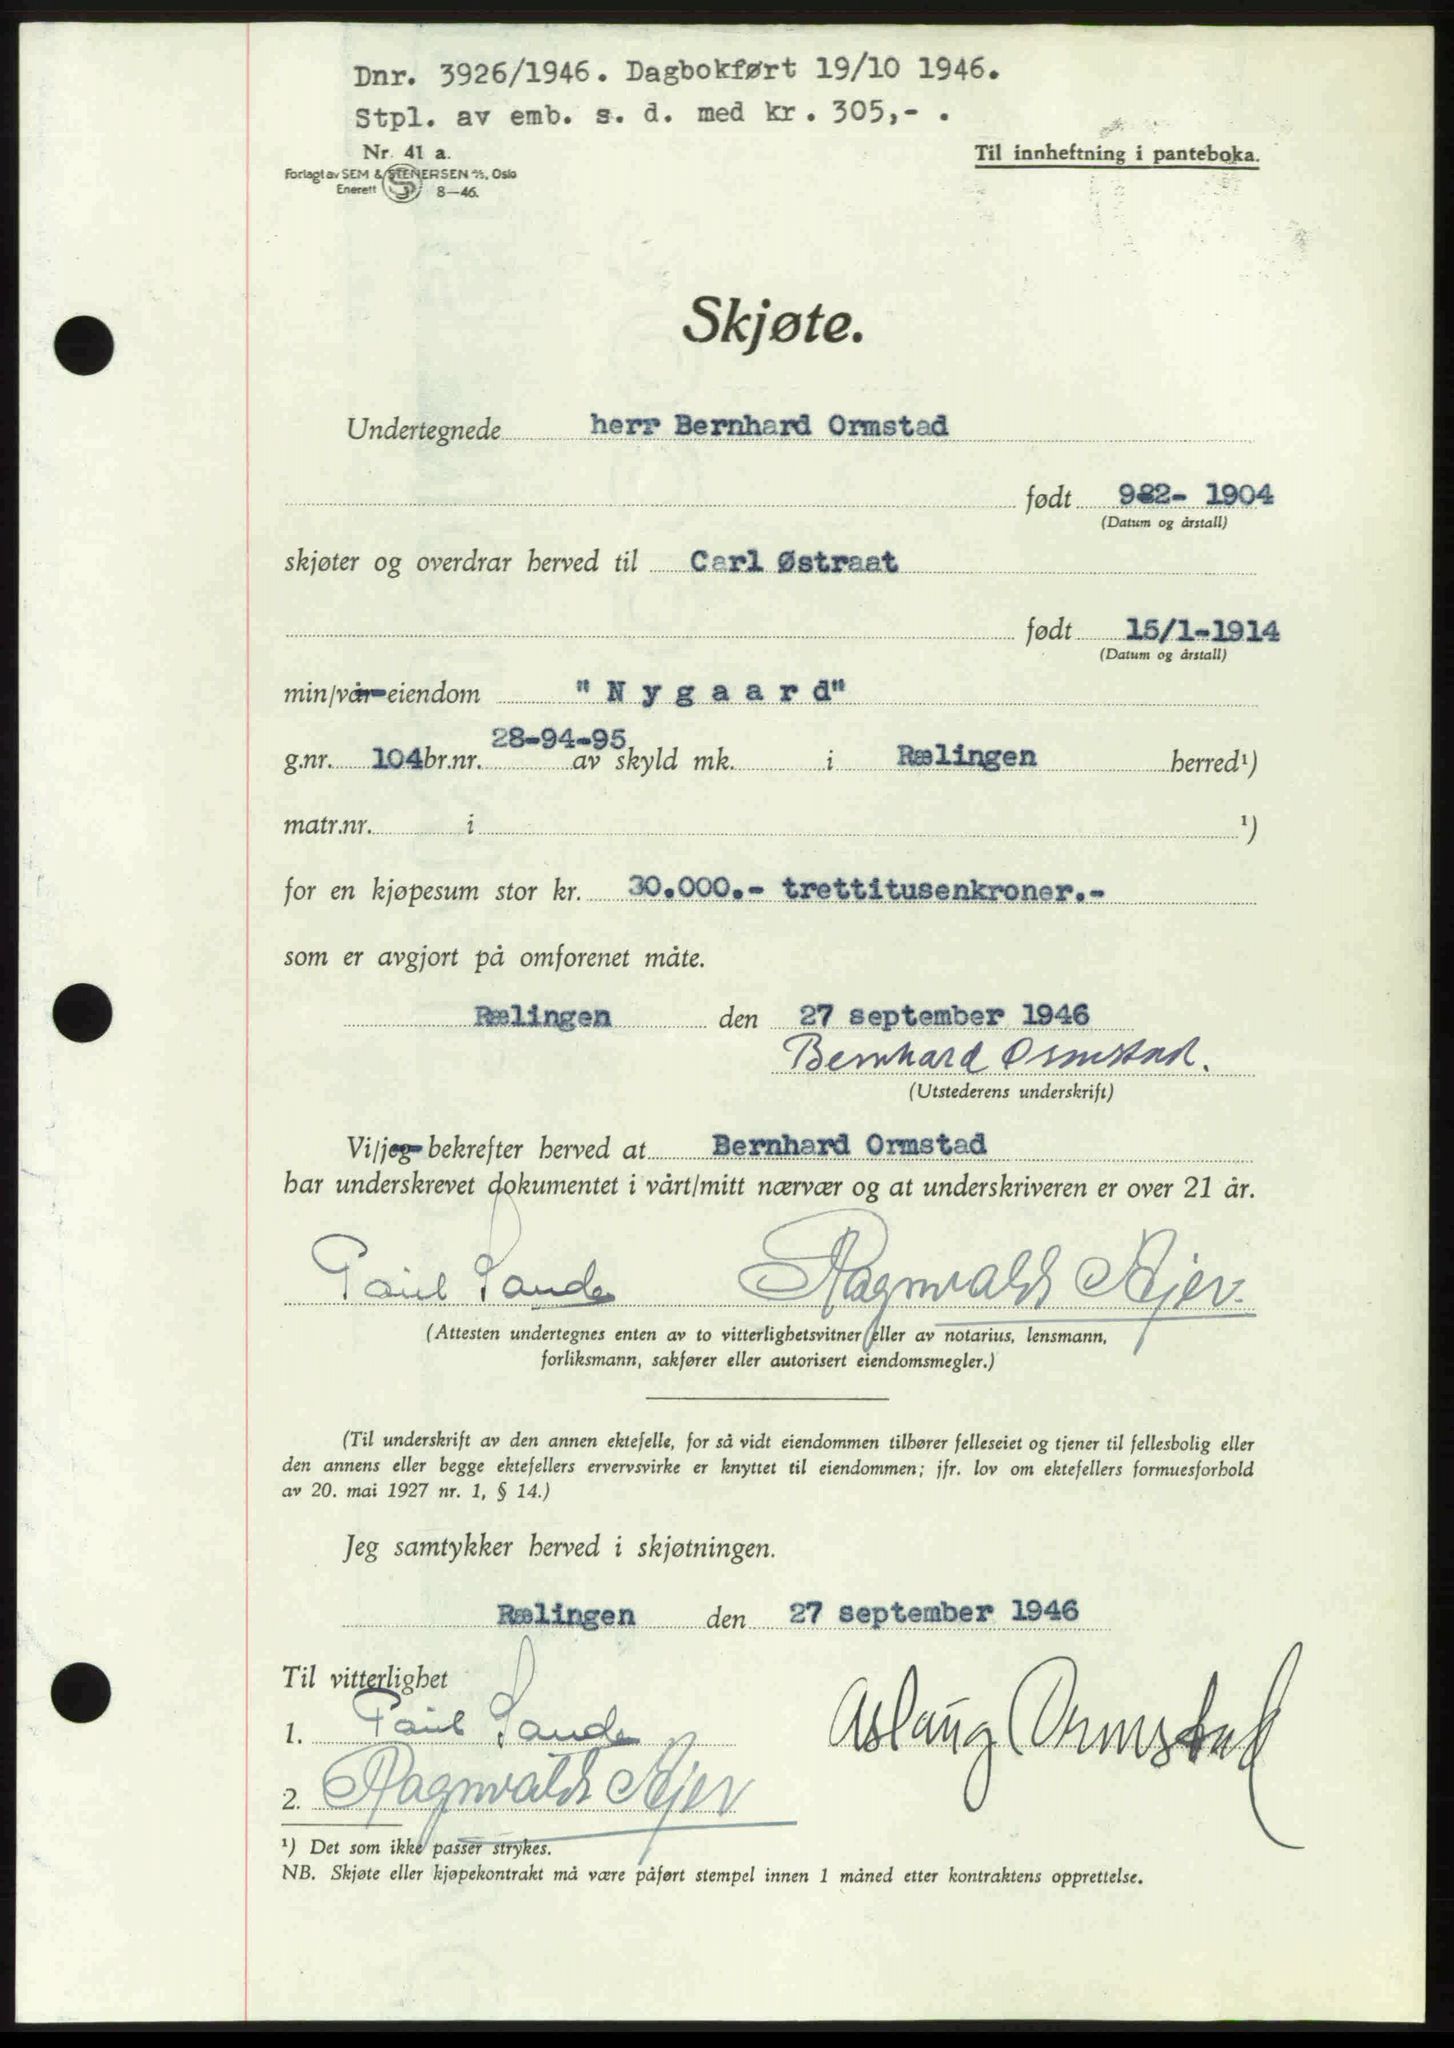 Dnr. 3926/1946. Dagbokført 19/10 1946.
Stpl. av emb. s. d. med kr. 305,- .
Nr. 41 a.
Forlagt av SEM & STENERSEN A/S, Oslo
Enerett 8—46.
Til innheftning i panteboka.
Skjøte.
Undertegnede herr Bernhard Ormstad
født 982- 1904
(Datum og årstall)
skjøter og overdrar herved til Carl Østraat
født 15/1-1914
(Datum og årstall)
min/vår eiendom "N y g a a r d"
28-94-95
g.nr. 104 br.nr. av skyld mk. i Rælingen herred¹)
matr.nr. i ¹)
for en kjøpesum stor kr. 30.000.- trettitusenkroner.-
som er avgjort på omforenet måte.
Rælingen den 27 september 1946
Bernhard Ormstad.
(Utstederens underskrift)
Vi/jeg bekrefter herved at Bernhard Ormstad
har underskrevet dokumentet i vårt/mitt nærvær og at underskriveren er over 21 år.
Paul Sande Ragnvald
(Attesten undertegnes enten av to vitterlighetsvitner eller av notarius, lensmann,
forliksmann, sakfører eller autorisert eiendomsmegler.)
(Til underskrift av den annen ektefelle, for så vidt eiendommen tilhører felleseiet og tjener til fellesbolig eller
den annens eller begge ektefellers ervervsvirke er knyttet til eiendommen; jfr. lov om ektefellers formuesforhold
av 20. mai 1927 nr. 1, § 14.)
Jeg samtykker herved i skjøtningen.
Rælingen den 27 september 1946
Til vitterlighet
1. Paul Sande
Aslaug Ormstad
2. Ragnvald
¹) Det som ikke passer strykes.
NB. Skjøte eller kjøpekontrakt må være påført stempel innen 1 måned etter kontraktens opprettelse.